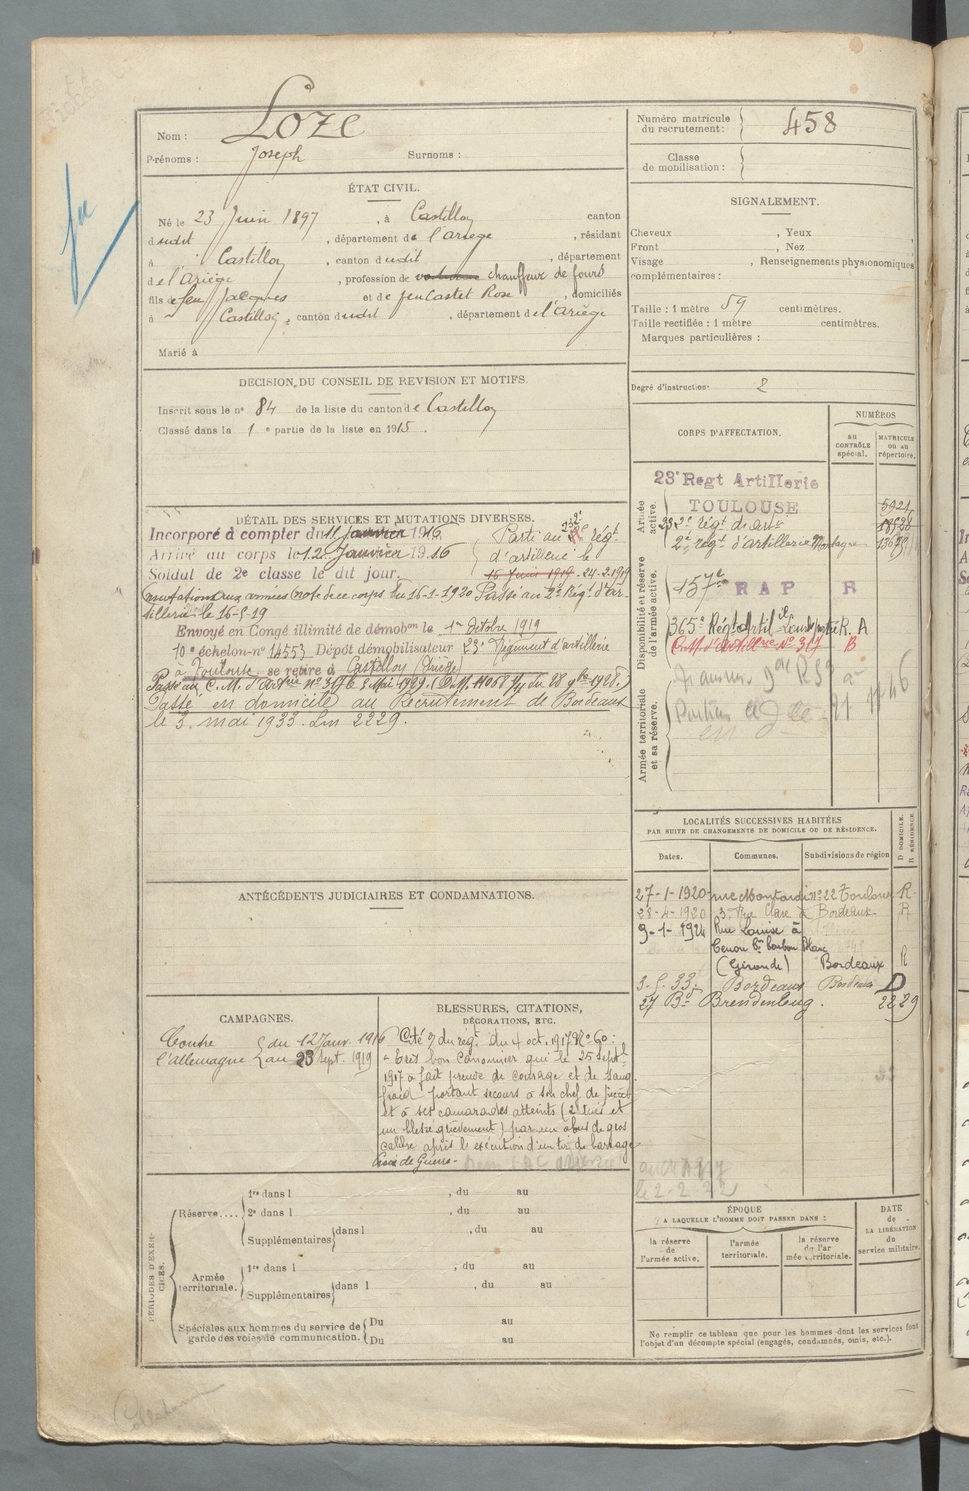 Nom : Loze
Prénoms : Joseph Surnoms :
Numéro matricule du recrutement : 458
Classe de mobilisation :
ÉTAT CIVIL.
Né le 23 Juin 1897, à Castillon canton
dudit, département de l'Ariège, résidant
à Castillon, canton dudit, département
de l'Ariège, profession de chauffeur de fours
fils de feu Jacques et de feu Castet Rose, domiciliés
à Castillon, canton dudit, département de l'Ariège
Marié à
SIGNALEMENT.
Cheveux , Yeux
Front , Nez
Visage , Renseignements physionomiques
complémentaires :
Taille : 1 mètre 59 centimètres.
Taille rectifiée : 1 mètre centimètres.
Marques particulières :
Degré d'instruction : 2
DÉCISION DU CONSEIL DE REVISION ET MOTIFS.
Inscrit sous le n° 84 de la liste du canton de Castillon
Classé dans la 1e partie de la liste en 1915.
DÉTAIL DES SERVICES ET MUTATIONS DIVERSES.
Incorporé à compter du 11 Janvier 1916
Arrivé au corps le 12 Janvier 1916
Soldat de 2e classe le dit jour
Parti au régt
d'artillerie le
15 Juin 1919 - 24-2-1919
(mutations aux armées (note de ce corps du 16-1-1920 Passé au 2e Rég. d'Ar-
tillerie le 16-5-19
Envoyé en Congé illimité de démobon le 1er Octobre 1919
10e échelon-n° 14553 Dépôt démobilisateur 23e Régiment d'artillerie
à Toulouse, se retire à Castillon (Ariège)
Passé au C.M. d'Artrie n° 317 le 5 Mai 1929.
Passé en domicile au Recrutement de Bordeaux
le 3 mai 1933. Lm 2229.
CORPS D'AFFECTATION.
NUMÉROS
au CONTRÔLE spécial.
MATRICULE ou au répertoire.
Armée active.
23e Regt Artillerie
TOULOUSE
2e régt d'artillerie Montagne
Disponibilité et réserve de l'armée active.
157e R A P R
365e Régt Artil Lourde portée R. A
C.M. d'artillerie N° 317 B
Armée territoriale et sa réserve.
LOCALITÉS SUCCESSIVES HABITÉES
PAR SUITE DE CHANGEMENTS DE DOMICILE OU DE RÉSIDENCE.
Dates. Communes. Subdivisions de région D DOMICILE. R RÉSIDENCE.
27-1-1920 rue Montardi n° 22 Toulouse R
28-4-1920 3, Rue Clare à Bordeaux R
9-1-1924 Rue Louise à
Cenon
(Gironde) Bordeaux R
3-5-33 Bordeaux Bordeaux D
27 Bd 2229
ANTÉCÉDENTS JUDICIAIRES ET CONDAMNATIONS.
CAMPAGNES.
Contre l'Allemagne du 12 Janv. 1916
au 23 Sept. 1919
BLESSURES, CITATIONS,
DÉCORATIONS, ETC.
Cité O/ du régt du 4 oct. 1917 N° 60 :
« Très bon canonnier qui le 25 sept
1917 a fait preuve de courage et de sang
froid portant secours à son chef de pièce
et à ses camarades atteints (2 tués et
un blessé grièvement) par un obus de gros
calibre après l'exécution d'un tir de barrage
Croix de Guerre -
PÉRIODES D'EXERCICES.
Réserve....
1re dans l , du au
2e dans l , du au
Supplémentaires dans l , du au
Armée territoriale.
1re dans l , du au
Supplémentaires dans l , du au
Spéciales aux hommes du service de
garde des voies de communication.
Du au
Du au
ÉPOQUE
A LAQUELLE L'HOMME DOIT PASSER DANS :
la réserve de l'armée active.
l'armée territoriale.
la réserve de l'armée territoriale.
DATE de LA LIBÉRATION du service militaire.
Ne remplir ce tableau que pour les hommes dont les services font
l'objet d'un décompte spécial (engagés, condamnés, omis, etc.).